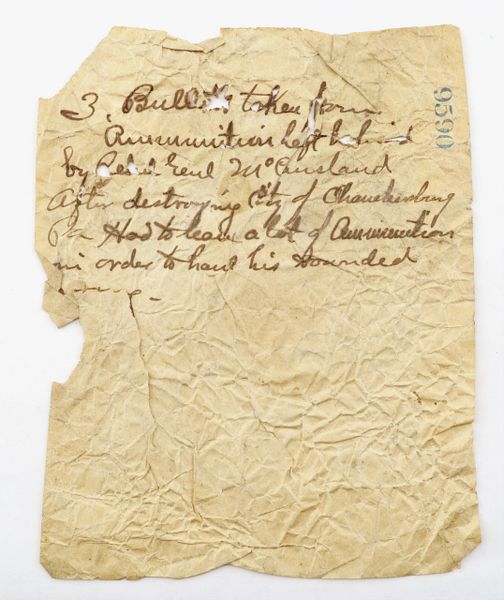 3. Bullets taken from
Ammunition Left behind
by Rebel Genl McCausland
After destroying City of Chambersburg
Pa Had to leave a lot of Ammunition
in order to haul his wounded
9590